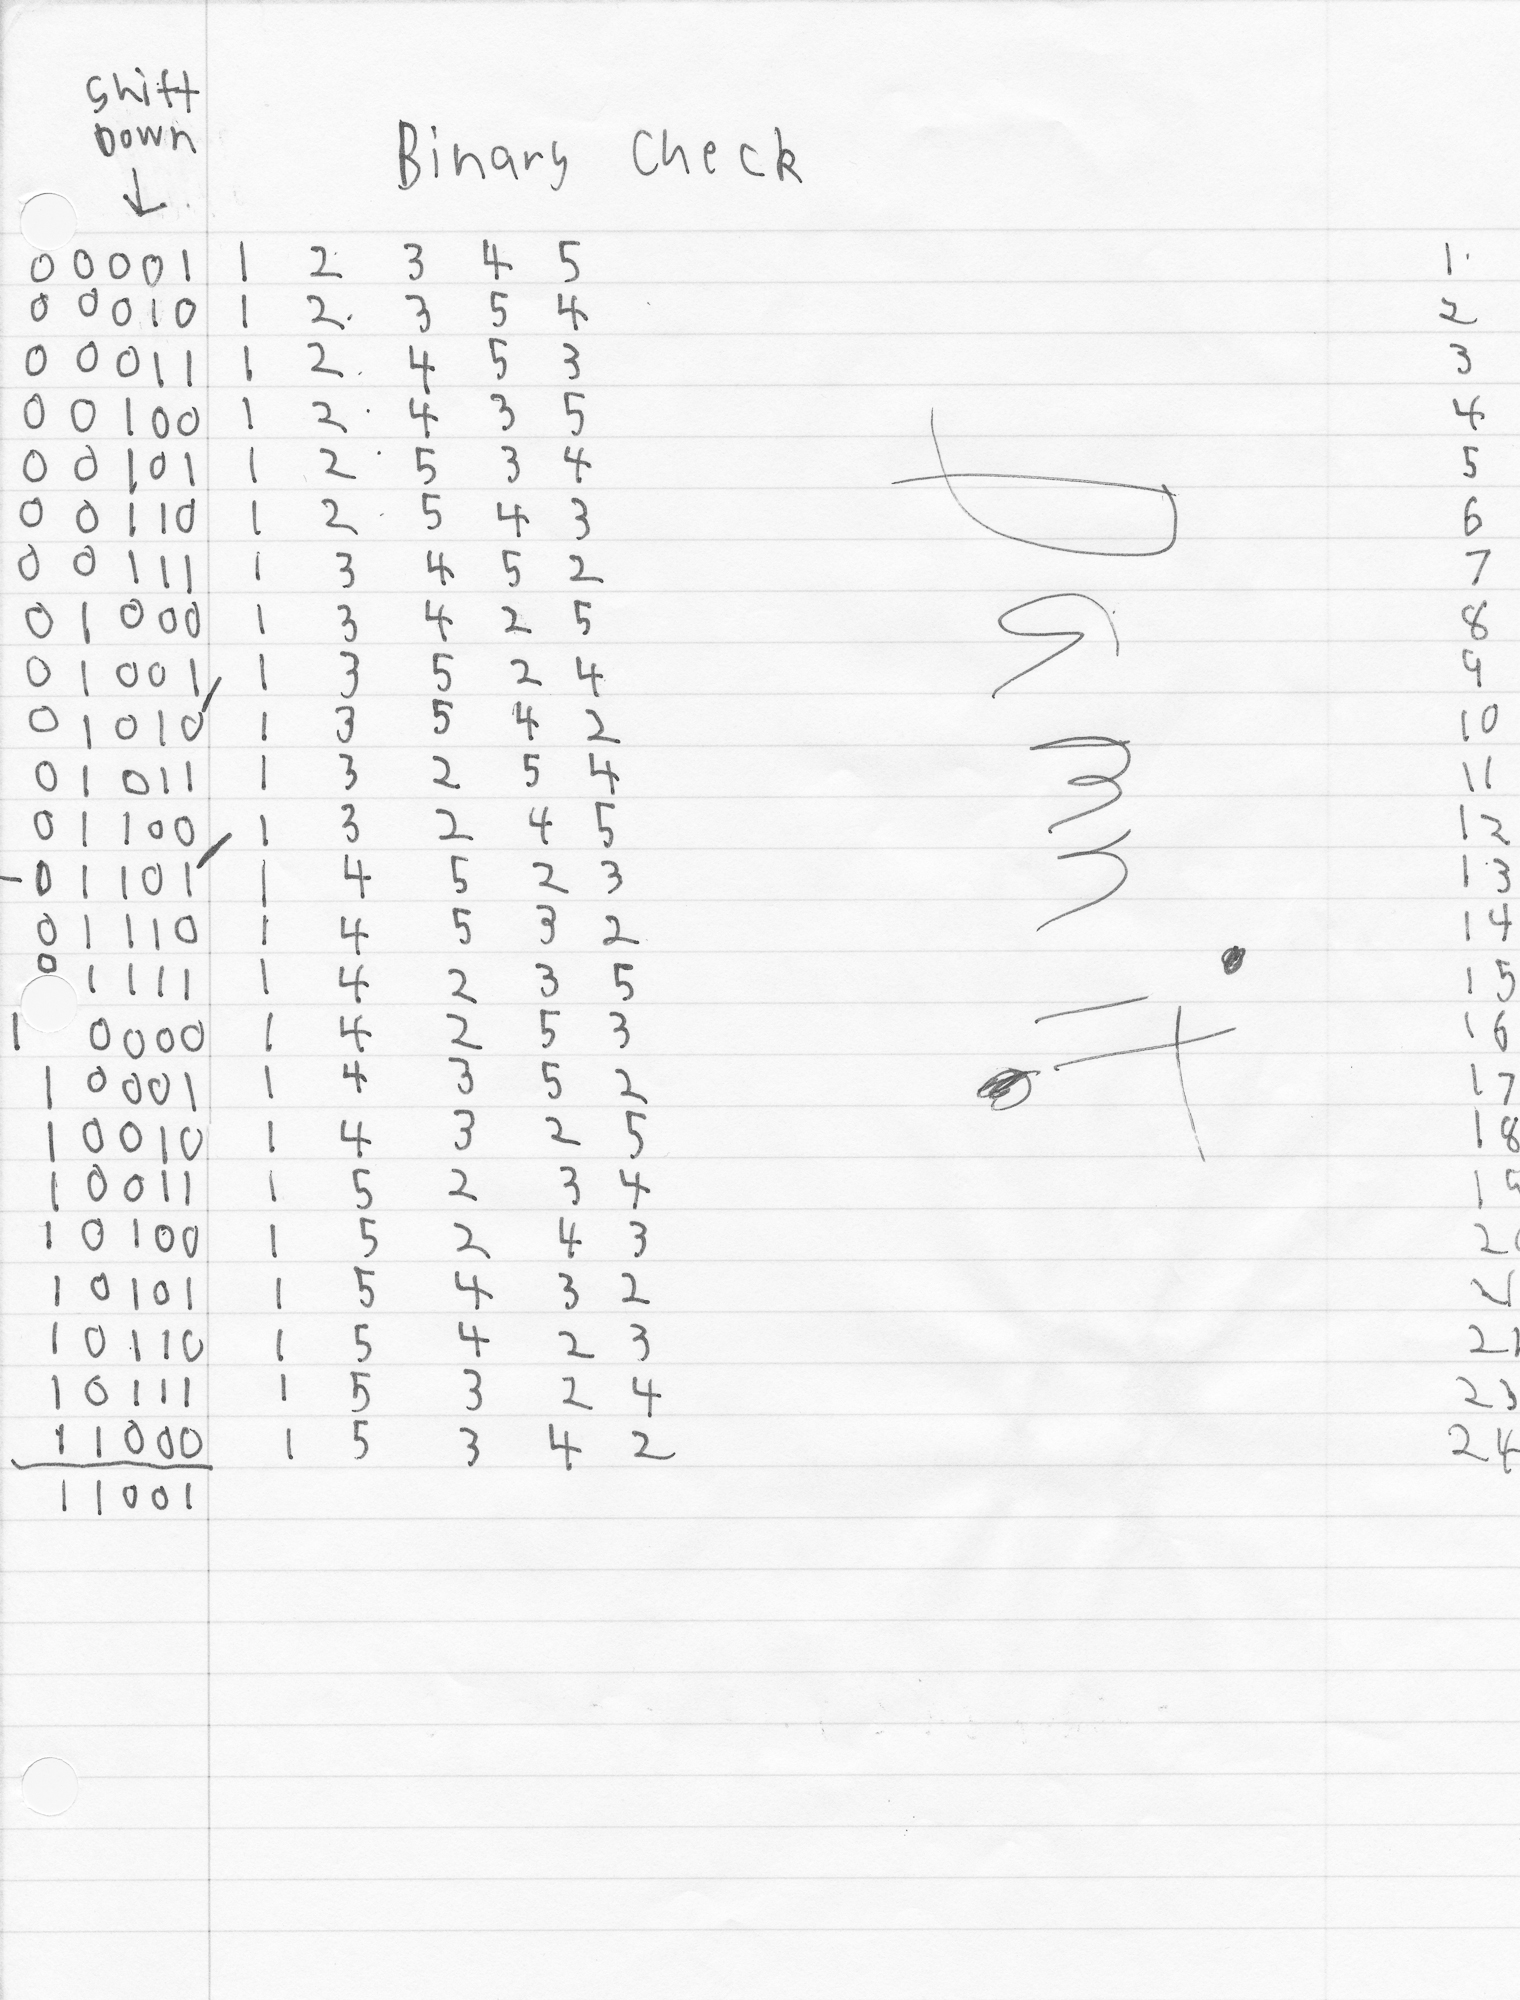 Shift
Down
↓
Binary Check
00001 1 2 3 4 5 1
00010 1 2 3 5 4 2
00011 1 2 4 5 3 3
00100 1 2 4 3 5 4
00101 1 2 5 3 4 5
00110 1 2 5 4 3 6
00111 1 3 4 5 2 7
01000 1 3 4 2 5 8
01001 1 3 5 2 4 9
01010 1 3 5 4 2 10
01011 1 3 2 5 4 11
01100 1 3 2 4 5 12
01101 1 4 5 2 3 13
01110 1 4 5 3 2 14
01111 1 4 2 3 5 15
10000 1 4 2 5 3 16
10001 1 4 3 5 2 17
10010 1 4 3 2 5 18
10011 1 5 2 3 4 19
10100 1 5 2 4 3 20
10101 1 5 4 3 2
10110 1 5 4 2 3
10111 1 5 3 2 4 23
11000 1 5 3 4 2 24
11001